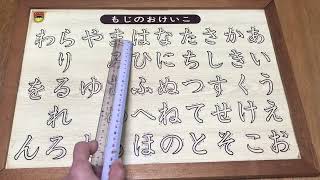 もじのおけいこ
あいうえお
かきくけこ
さしすせそ
たちつてと
なにぬねの
はひふへほ
ま
やゆ
らりるれろ
わをん